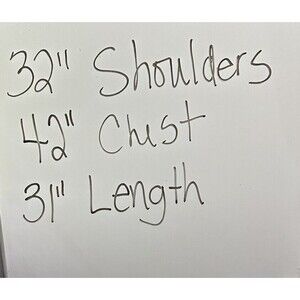 32" Shoulders
42" Chest
31" Length